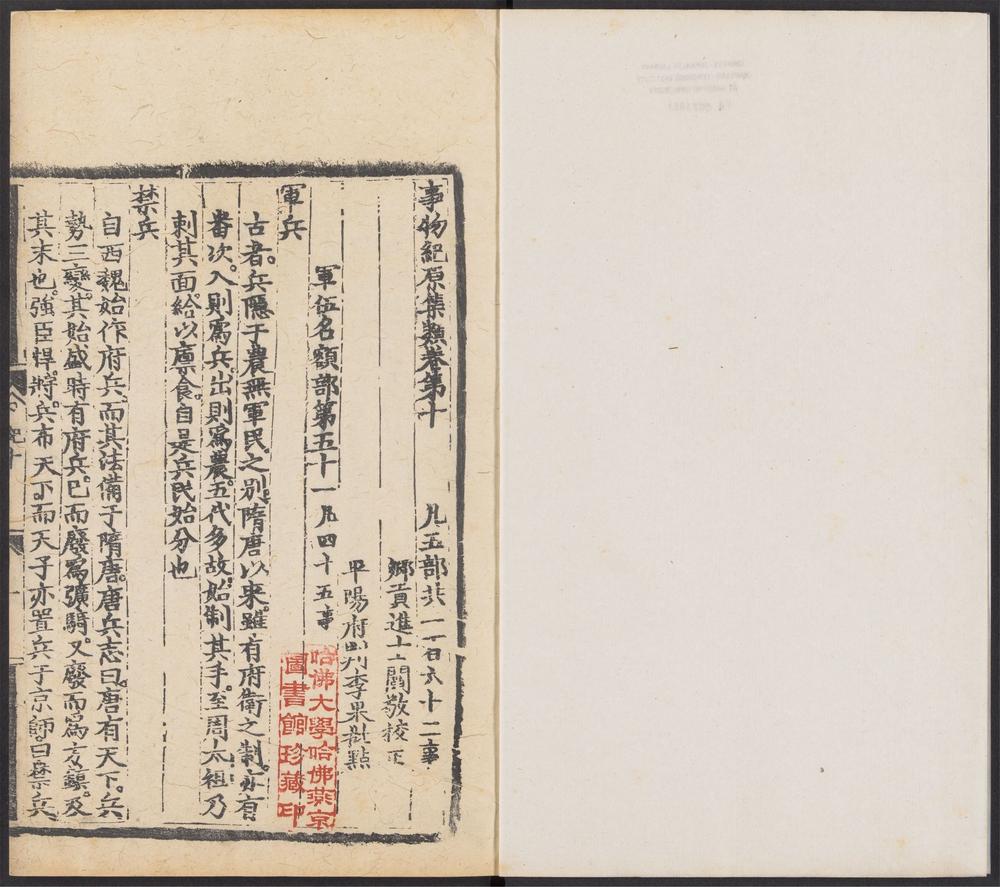 事物紀原集類卷第十 凡五部共一百六十二事
鄉貢進士閻敬校正
平陽府判李果批點
軍伍名額部第五十一凡四十五事
軍兵
古者。兵隱于農無軍民之別。隋唐以來。雖有府衛之制。亦有
番次。入則爲兵。出則爲農。五代多故。始制其手。至周太祖乃
刺其面。給以廪食。自是兵民始分也
禁兵
自西魏始作府兵。而其法備于隋唐。唐兵志曰。唐有天下。兵
勢三變。其始盛時有府兵。已而廢爲彍騎。又廢而爲方鎮。及
其末也。強臣悍將。兵布天下而天子亦置兵于京師。曰禁兵
哈佛大學哈佛燕京
圖書館珍藏印